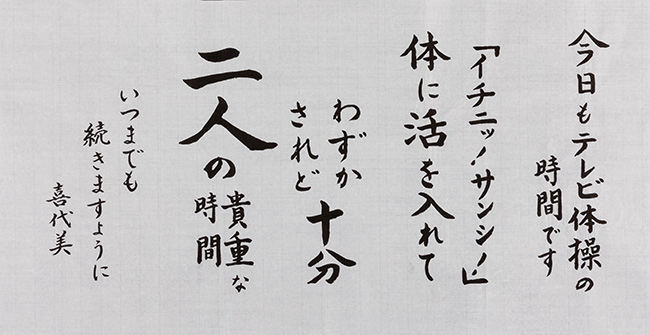 今日もテレビ体操の
時間です
「イチニッ!サンシ!」
体に活を入れて
わずか
されど
十分
二人の
貴重な
時間
いつまでも
続きますように
喜代美